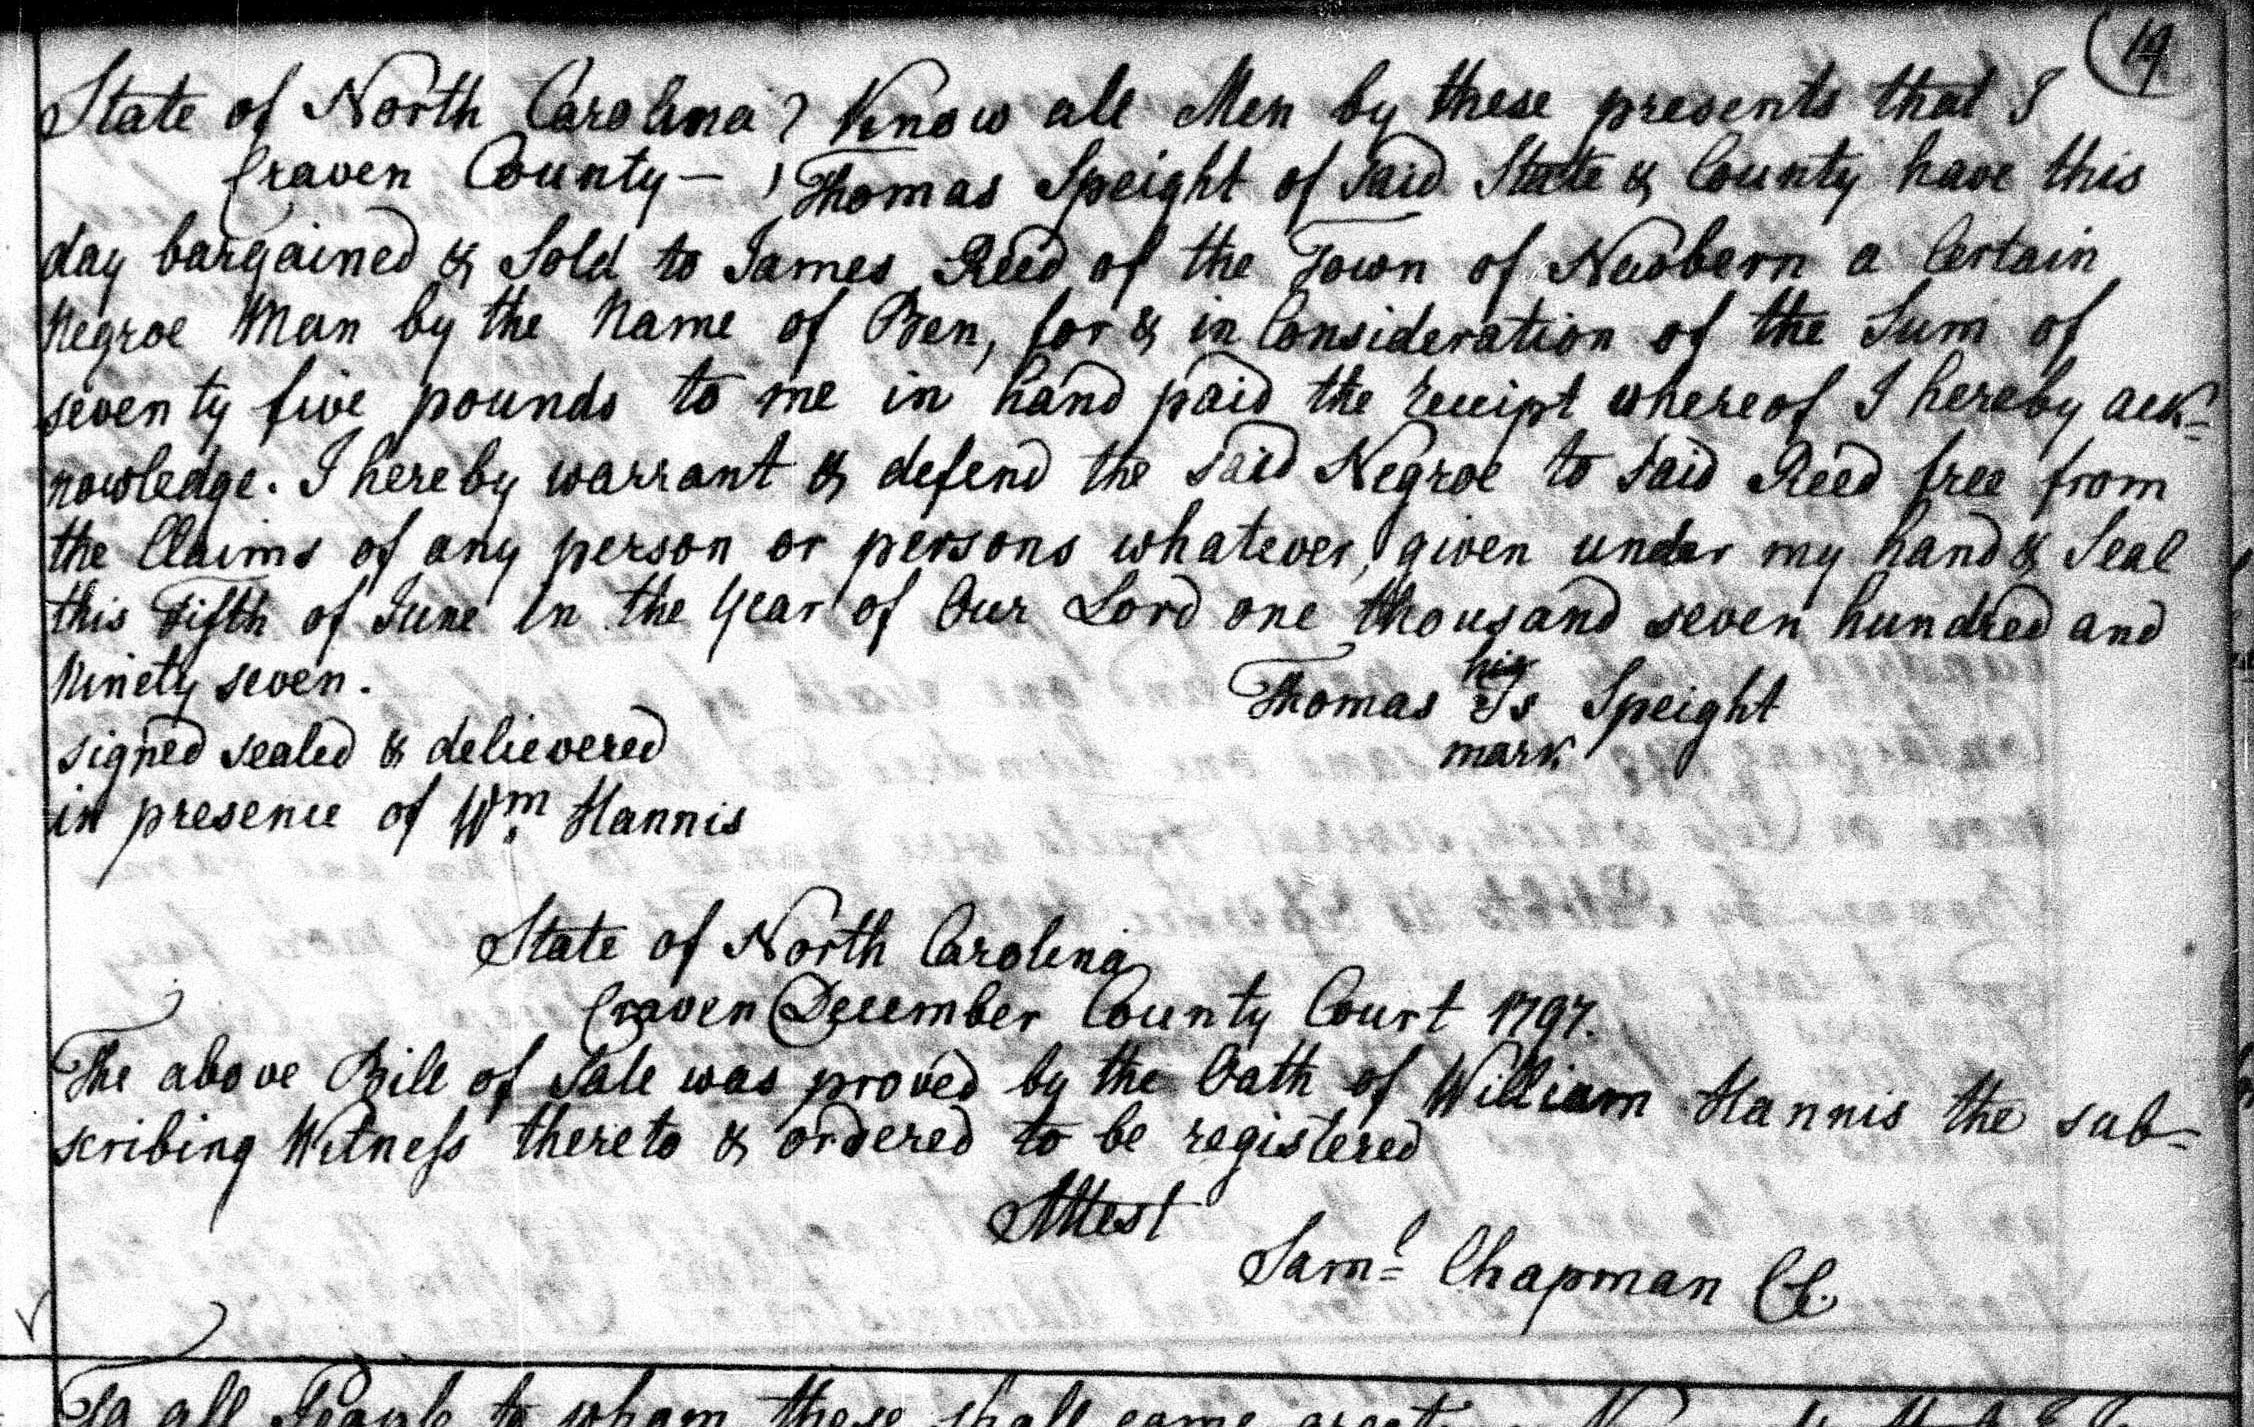 19
State of North Carolina } Know all Men by these presents that I
Craven County — } Thomas Speight of said State & County have this
day bargained & Sold to James Reed of the Town of Newbern a Certain
Negroe Man by the Name of Ben, for & in Consideration of the Sum of
seventy five pounds to me in hand paid the receipt whereof I hereby ack=
nowledge. I hereby warrant & defend the said Negroe to said Reed free from
the Claims of any person or persons whatever, given under my hand & Seal
this Fifth of June in the Year of Our Lord one thousand seven hundred and
Ninety seven.
his
Thomas Ts Speight
mark
signed sealed & delievered
in presence of Wm Hannis
State of North Carolina
Craven December County Court 1797.
The above Bill of Sale was proved by the Oath of William Hannis the sub=
scribing Witness thereto & ordered to be registered
Attest
Saml Chapman Cl.
To all People to whom these shall come